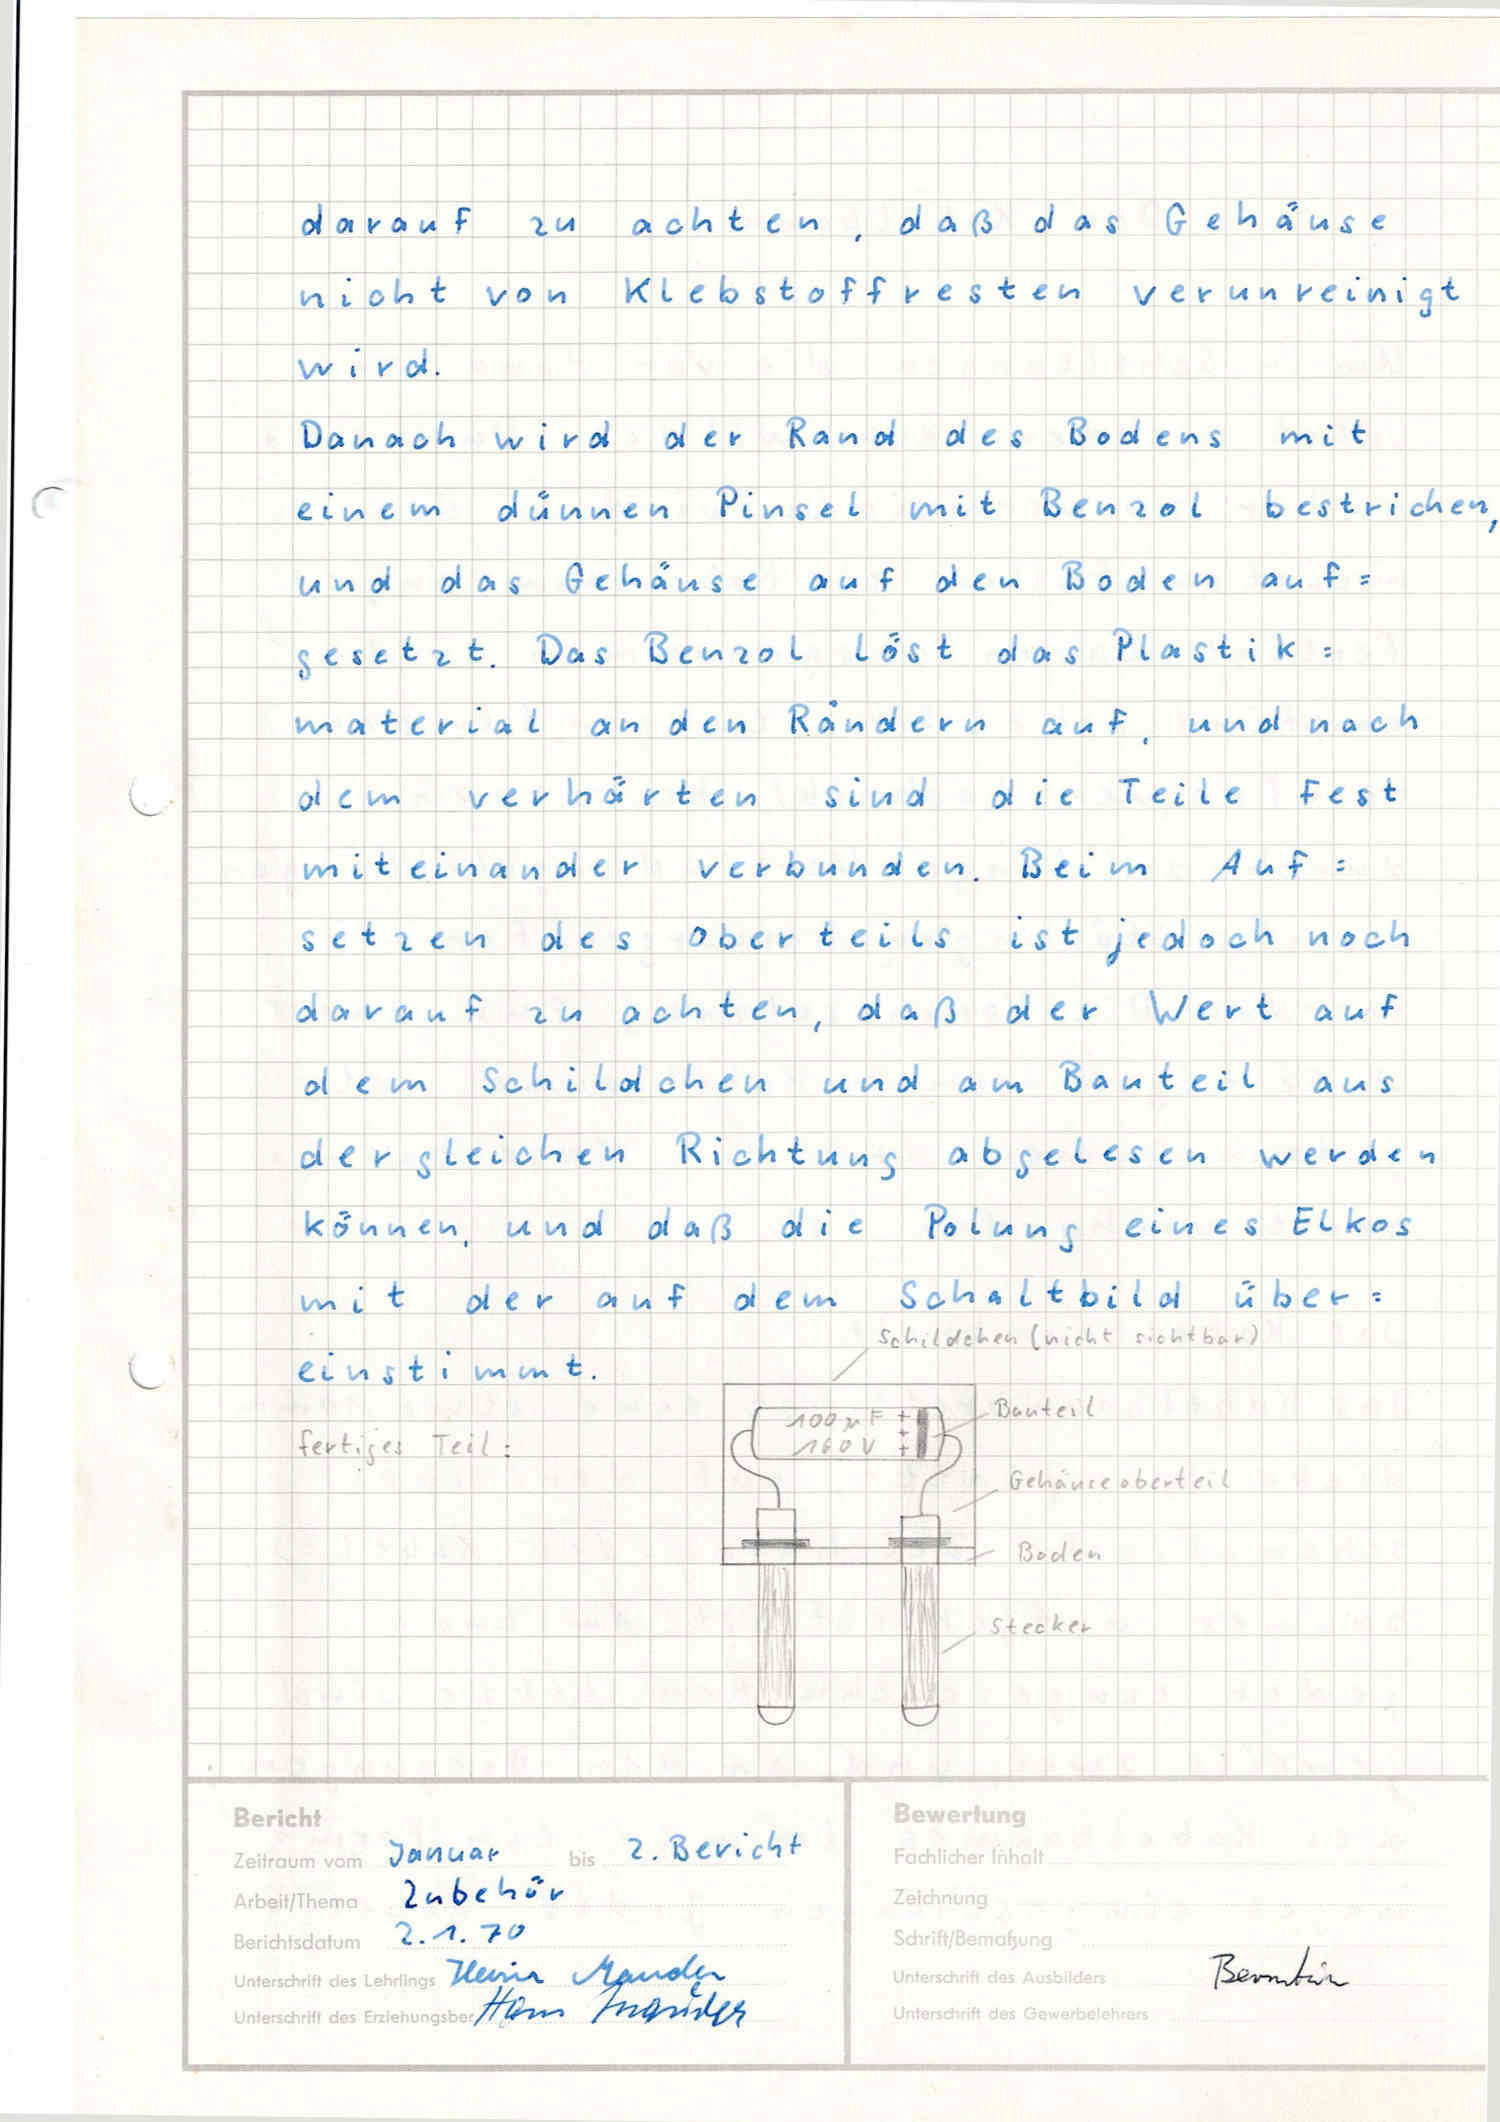 darauf zu achten, daß das Gehäuse
nicht von Klebstoffresten verunreinigt
wird.
Danach wird der Rand des Bodens mit
einem dünnen Pinsel mit Benzol bestrichen,
und das Gehäuse auf den Boden auf=
gesetzt. Das Benzol löst das Plastik=
material an den Rändern auf, und nach
dem verhärten sind die Teile fest
miteinander verbunden. Beim Auf=
setzen des Oberteils ist jedoch noch
darauf zu achten, daß der Wert auf
dem Schildchen und am Bauteil aus
der gleichen Richtung abgelesen werden
können, und daß die Polung eines Elkos
mit der auf dem Schaltbild über=
einstimmt.
Schildchen (nicht sichtbar)
fertiges Teil:
100 µF +
160 V +
+
Bauteil
Gehäuseoberteil
Boden
Stecker
Bericht
Zeitraum vom Januar bis 2. Bericht
Arbeit/Thema Zubehör
Berichtsdatum 2.1.70
Unterschrift des Lehrlings
Unterschrift des Erziehungsber. Hans
Bewertung
Fachlicher Inhalt
Zeichnung
Schrift/Bemaßung
Unterschrift des Ausbilders
Unterschrift des Gewerbelehrers